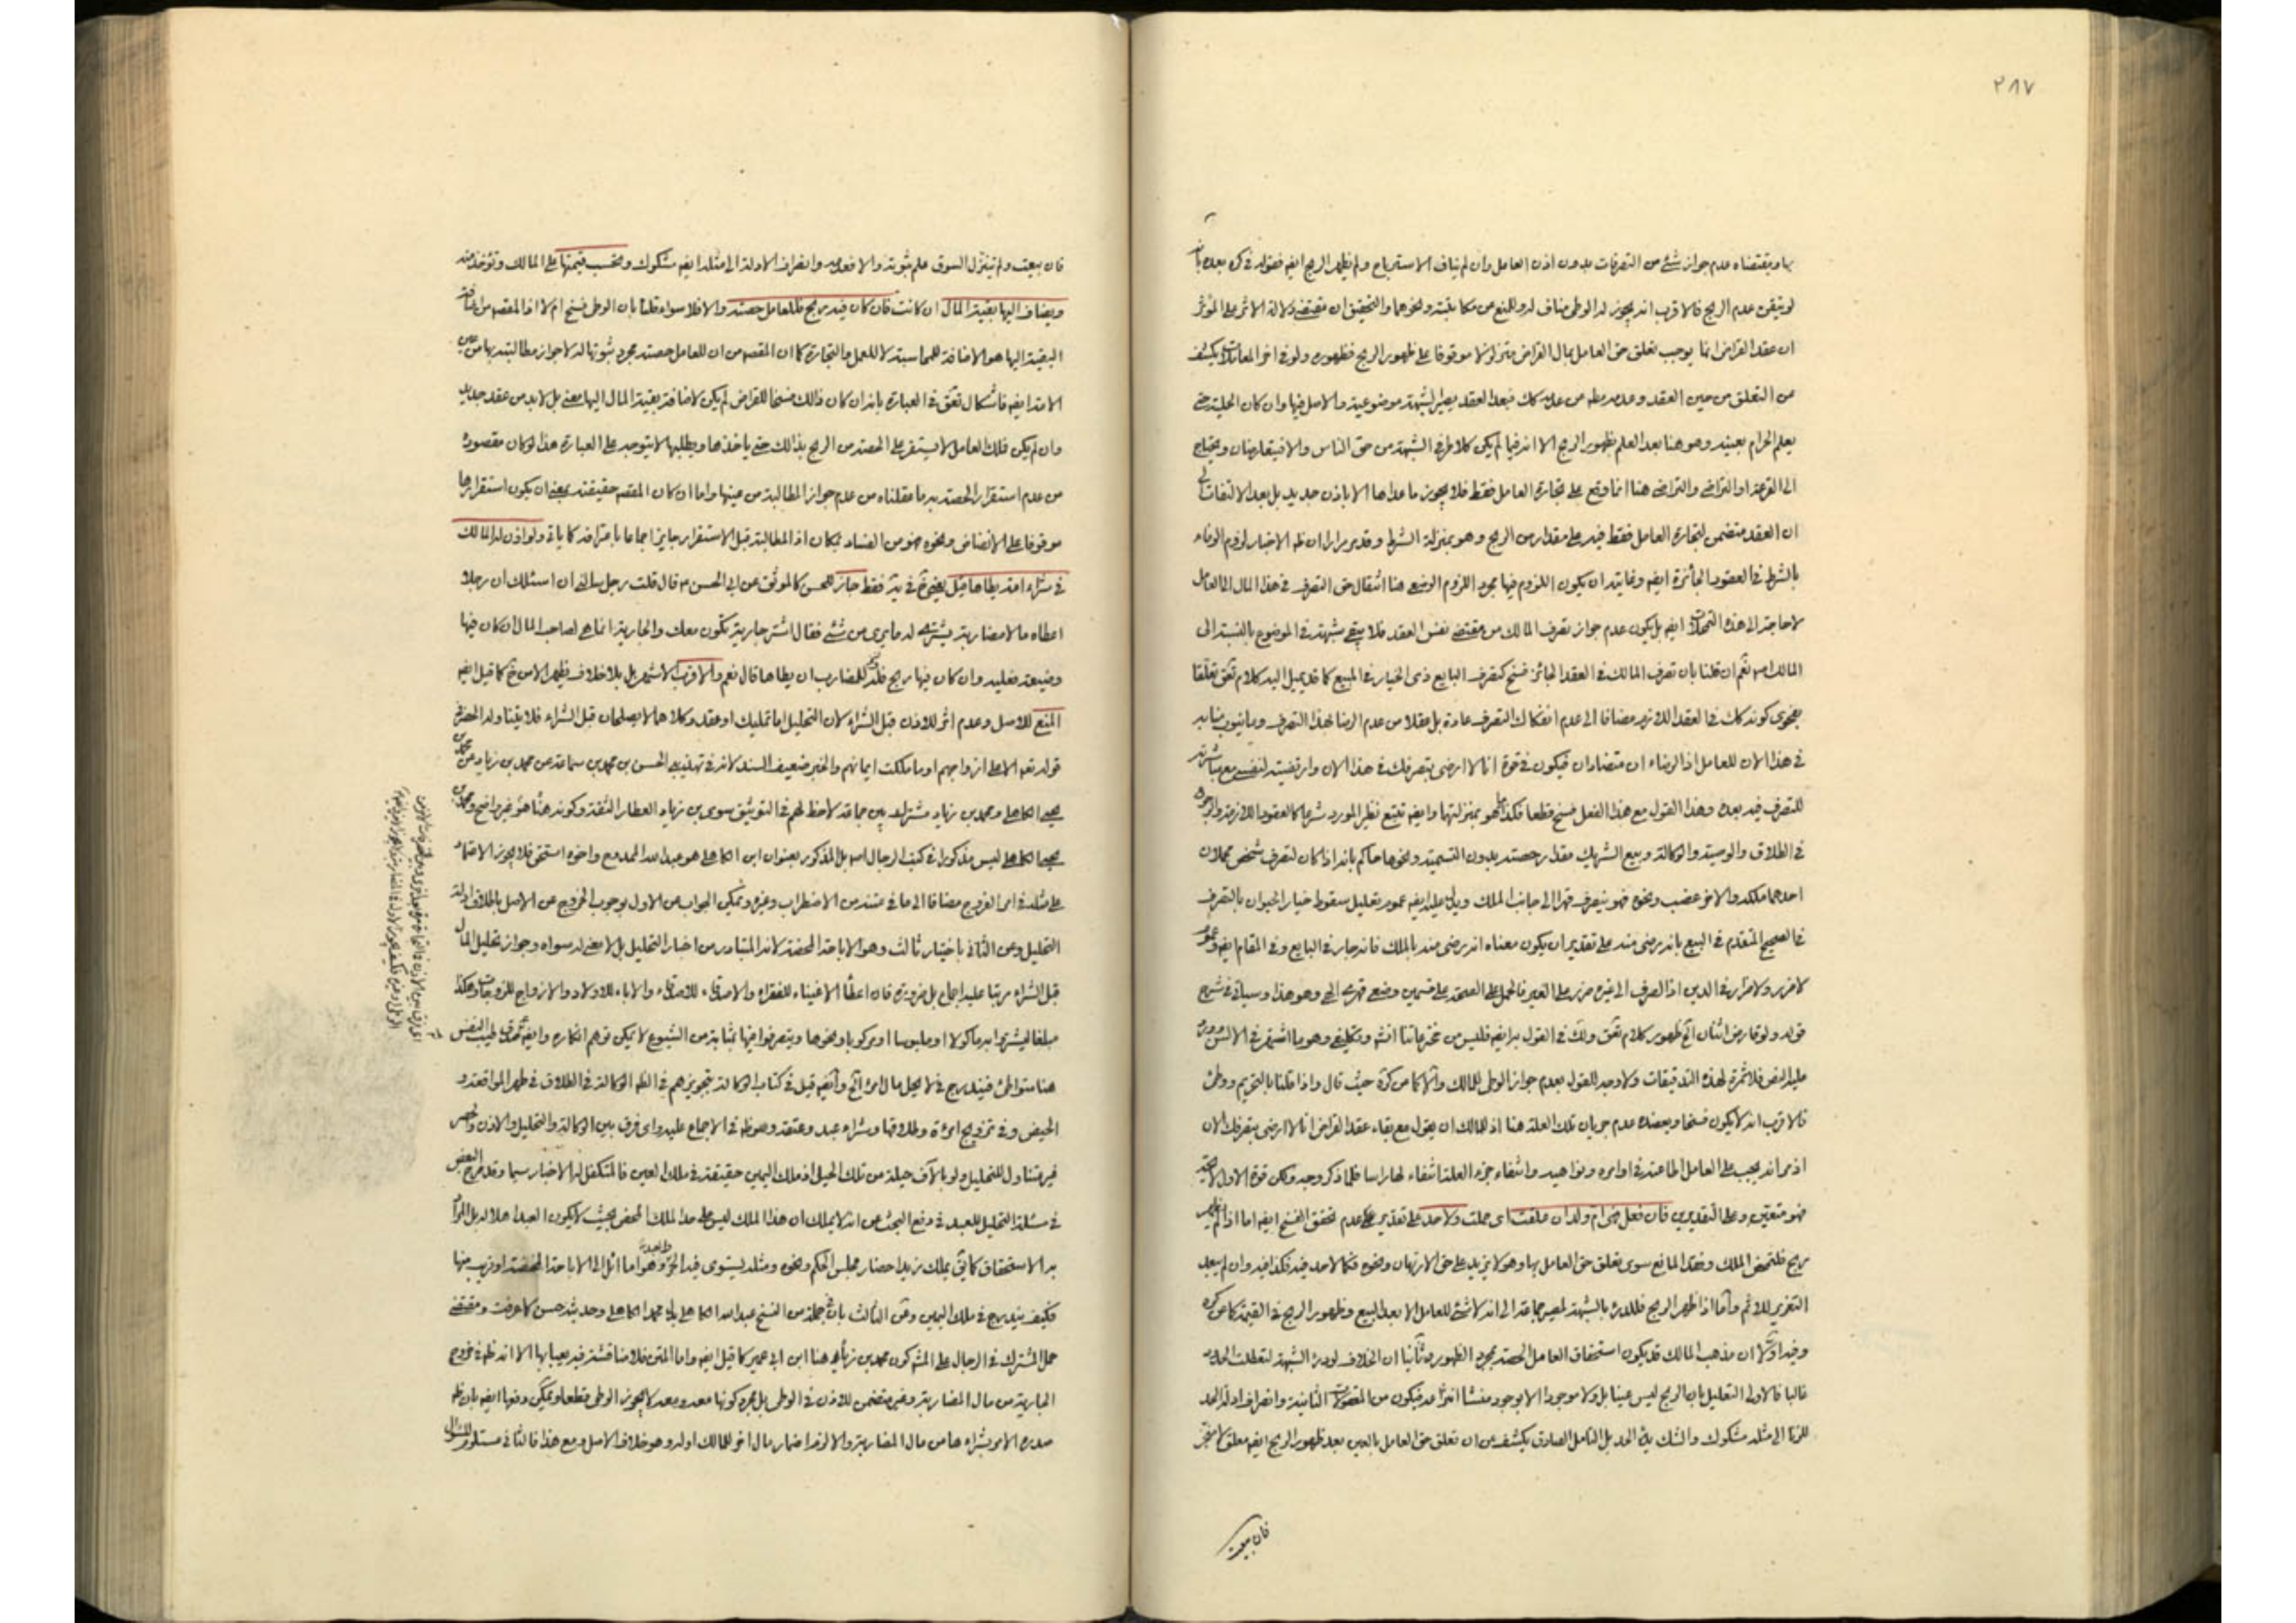 ٢٨٧
بما ويقتضاه عدم جواز شئ من التصرفات بدون اذن العامل وان لم يناف الاسترباح ولم يظهر الربح ايضا فقوله في كره بعده بانه
لو تيقن عدم الربح فالاقرب انه يجوز له الوطى مناف له وللمنع من مكاتبته ونحوهما والتحقيق ان مقتضى دلالة الاثر على المؤثر
ان عقد القراض انما يوجب تعلق حق العامل بمال القراض متزلزلا موقوفا على ظهور الربح فظهوره ولو في اخر المعاملات يكشف
من التعلق من حين العقد وعدمه من عدمه كك فبعد العقد يصير الشبهة موضوعية والاصل فيها وان كان الحلية حتى
يعلم الحرام بعينه وهو هنا بعد العلم بظهور الربح الا انه فيما لم يكن كلا طرفى الشبهة من حق الناس والا فيتعارضان ويحتاج
الى القرعة او التراضى والتراضى هنا انما وقع على تجارة العامل فقط فلا يجوز ما عداها الا باذن جديد بل بعد الالتفات الى
ان العقد متضمن لتجارة العامل فقط فيه على مقدار من الربح وهو بمنزلة الشرط وقد مر مرارا ان ظ الاخبار لزوم الوفاء
بالشرط في العقود الجائزة ايضا وغايته ان يكون اللزوم فيها مجرد اللزوم الوضعى هنا انتقال حق التصرف في هذا المال الى العامل
لا حاجة الى هذه التمحلات ايضا بل يكون عدم جواز تصرف المالك من مقتضى نفس العقد فلا يبقى شبهة في الموضوع بالنسبة الى
المالك اصلا نعم ان قلنا بان تصرف المالك في العقد الجائز فسخ كتصرف البايع ذى الخيار في المبيع كما قد يميل اليه كلام
بفحوى كونه كك في العقد اللازم مضافا الى عدم انفكاك التصرف عادة بل عقلا من عدم الرضا بهذا التصرف
في هذا الان للعامل اذ الرضاء ان متضادان فيكون في قوة انا لا ارضى بتصرفك في هذا الان وارتضيته لنفسى مع مباشرته
للتصرف فيه بعده وهذا القول مع هذا الفعل فسخ قطعا فكذا هو بمنزلتها وايضا تتبع نظير المورد شرعا كالعقود اللازمة والرجوع
في الطلاق والوصية والوكالة وبيع الشريك مقدار حصته بدون التسمية ونحوها حاكم بانه اذا كان لتصرف شخص محملان
احدهما ملكه والاخر غصب ونحوه فهو ينصرف قهرا الى جانب الملك ويدل عليه ايضا عموم تعليل سقوط خيار الحيوان بالتصرف
في الصحيح المتقدم في البيع بانه رضى منه على تقدير ان يكون معناه انه رضى منه بالملك فانه جار في البايع وفى المقام ايضا وعموم
لا ضرر ولا ضرار في الدين اذ الصرف الى غيره ضرر على الغير فالحمل على الصحة على قسمين وضعى قهرى الهى وهو هذا وسيأتى في شرح
قوله ولو قارض اثنان الخ ظهور كلام
عليه النص فلا ثمرة لهذه التدقيقات ولا وجه للقول بعدم جواز الوطى للمالك حيث قال واذا قلنا بالتحريم ووطئ
فالاقرب انه لا يكون فسخا ويعضده عدم جريان تلك العلة هنا اذ للمالك ان يقول مع بقاء عقد القراض انا لا ارضى بتصرفك الان
اذ مر انه يجب على العامل اطاعته في اوامره ونواهيه وانتفاء جزء العلة انتفاء لها راسا فلما ذكر وجه ولكن قوة الاول لائحة
فهو متعين وعلى التقديرين فان فعل فهى ام ولد ان علقت اى حملت ولا حد على تقدير عدم تحقق الفسخ ايضا اما اذا لم يظهر
ربح فلتمحض الملك وفقد المانع سوى تعلق حق العامل بها وهو لا يزيد على حق الارتهان ونحوه فكما لا حد فيه فكذا فيه وان لم يبعد
التعزير للاثم واما اذا ظهر الربح فللدرء بالشبهة لمصير جماعة الى انه لا شئ للعامل الا بعد البيع وظهور الربح في القيمة كما عن كره
وفيه اولا ان مذهب المالك قد يكون استحقاق العامل الحصة بمجرد الظهور وثانيا ان الخلاف لو درء الشبهة لتعطلت الحدود
غالبا فالاولى التعليل بان الربح ليس عينا بل ولا موجودا الا بوجود منشا انتزاعه فيكون من المعقولات الثانية وانصراف ادلة الحد
للزنا الى مثله مشكوك والشك يدرء الحد بل التامل الصادق يكشف عن ان تعلق حق العامل بالعين بعد ظهور الربح ايضا معلق
فان بيعت
فان بيعت ولم يتنزل السوق علم ثبوته والا فعدمه وانصراف الادلة الى مثله ايضا مشكوك ويحسب قيمتها على المالك وتؤخذ منه
ويضاف اليها بقية المال ان كانت فان كان فيه ربح فللعامل حصته والا فلا سواء قلنا بان الوطى فسخ ام لا اذ المقصود من اضافة
البقية اليها هو الاضافة للمحاسبة لا للعمل والتجارة كما ان المقصود من ان للعامل حصته مجرد ثبوتها له لا جواز مطالبته بها من عين
الامة ايضا فاشكال في العبارة بانه ان كان ذلك فسخا للقراض لم يكن لاضافة بقية المال اليها معنى بل لا بد من عقد جديد
وان لم يكن فملك العامل لا يستقر على الحصة من الربح بذلك حتى ياخذها ويطلبها لا يتوجه على العبارة هذا لو كان مقصوده
من عدم استقرار الحصة به ما عقلناه من عدم جواز المطالبة من عينها واما ان كان المقصود حقيقته بمعنى ان يكون استقرارها
موقوفا على الانضاض ونحوه فهو من الفساد بمكان اذ المطالبة قبل الاستقرار جايز اجماعا باعترافه كما ياتى ولو اذن له المالك
في شراء امة يطاها قيل يجوز في يه فقط جاز للحسن كالموثق عن ابى الحسن ع قال قلت رجل سالنى ان اسئلك ان رجلا
اعطاه مالا مضاربة يشترى له ما يرى من شئ فقال اشتر جارية تكون معك والجارية انما هى لصاحب المال ان كان فيها
وضيعة فعليه وان كان فيها ربح فله للمضارب ان يطاها قال نعم والاقرب الاشهر بل بلا خلاف يظهر الا من خ كما قيل ايضا
المنع للاصل وعدم اثر للاذن قبل الشراء لان التحليل اما تمليك او عقد وكلاهما لا يصلحان قبل الشراء
قوله تعه الا على ازواجهم او ما ملكت ايمانهم والخبر ضعيف السند لانه في الحسن بن محمد بن سماعة عن محمد بن زياد عن محمد بن
يحيى الكاهلى ومحمد بن زياد مشترك بين جماعة لا حظ لهم في التوثيق سوى بن زياد العطار الثقة وكونه هنا هو غير واضح ومحمد بن
يحيى الكاهلى ليس مذكورا في كتب الرجال اصلا بل المذكور بعنوان ابن الكاهلى هو عبد الله الممدوح واخوه اسحق فلا يجوز الاعتماد
على مثله في امر الفروج مضافا الى ما في متنه من الاضطراب وغيره ويمكن الجواب عن الاول بوجوب الخروج عن الاصل باطلاق ادلة
التحليل وعن الثانى باختيار ثالث وهو الاباحة المحضة لانه المتبادر من اخبار التحليل بل لا معنى له سواه وجواز تحليل المال
قبل الشراء مرتبا عليه اجماع بل ضرورة فان اعطاء الاغنياء للفقراء والاصدقاء للاصدقاء والاباء للاولاد والازواج للزوجات وهكذا
مبلغا ليشتروا به ماكولا او ملبوسا او مركوبا ونحوها ويتصرفوا فيها بمثابة من الشيوع لا يمكن توهم انكاره وايضا طيب النفس
هنا متواطئ فيندرج في لا يحل مال امرء الخ وايضا قيل في كتاب الوكالة بتجويزهم في الظ الوكالة في الطلاق في طهر المواقعة و
الحيض وفى تزويج امرءة وطلاقها وشراء عبد وعتقه وهو ظ في الاجماع عليه واى فرق بين الوكالة والتحليل والاذن
غير متناول للتحليل ولو بالاف حيلة من تلك الحيل اذ ملك اليمين حقيقة في ملك العين فالمتكفل له الاخبار سيما وقد صرح البعض
في مسئلة التحليل للعبد في دفع البحث عن انه لا يملك ان هذا الملك ليس على حد الملك المحض بحيث لا يكون العبد اهلا له بل المراد
به الاستحقاق كما يق يملك زيد احضار مجلس الحكم ونحوه ومثله يستوى فيه الحر والعبد وهو اما ائل الى الاباحة المحضة او قريب منها
فكيف يندرج في ملك اليمين وعن الثالث بان في جملة من النسخ عبد الله الكاهلى بدل محمد الكاهلى وحديثه حسن كما عرفت ومقتضى
حمل المشترك في الرجال على المشهور كون محمد بن زياد هنا ابن ابى عمير كما قيل ايضا واما المتن فلا مناقشة فيه يعبا بها الا انه ظ في خروج
الجارية من مال المضاربة وغير متضمن للاذن في الوطى بل مجرد كونها معه وبعد لا يجوز الوطى قطعا ويمكن دفعها ايضا بان ظ
صدره الامر بشراءها من مال المضاربة والا لزم اضمار مال اخر للمالك اوله وهو خلاف الاصل ومع هذا فالثانى مستلزم للسؤال